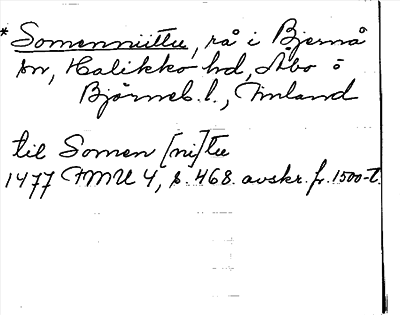 * Somenniittu, rå i Bjernå
sn, Halikko hd, Åbo o
Björneb. l., Finland
til Somen [ni]tu
1477 FMU 4, s. 468. avskr. fr. 1500-t.